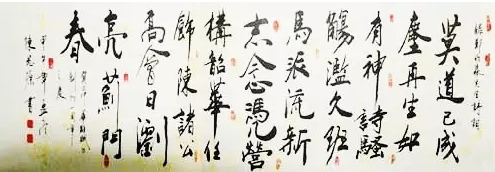 莫道已成
塵再生如
有神詩騷
觴濫久班
馬派流新
志念凴營
構韶華任
飾陳諸公
高會日瀏
亮薊門
春